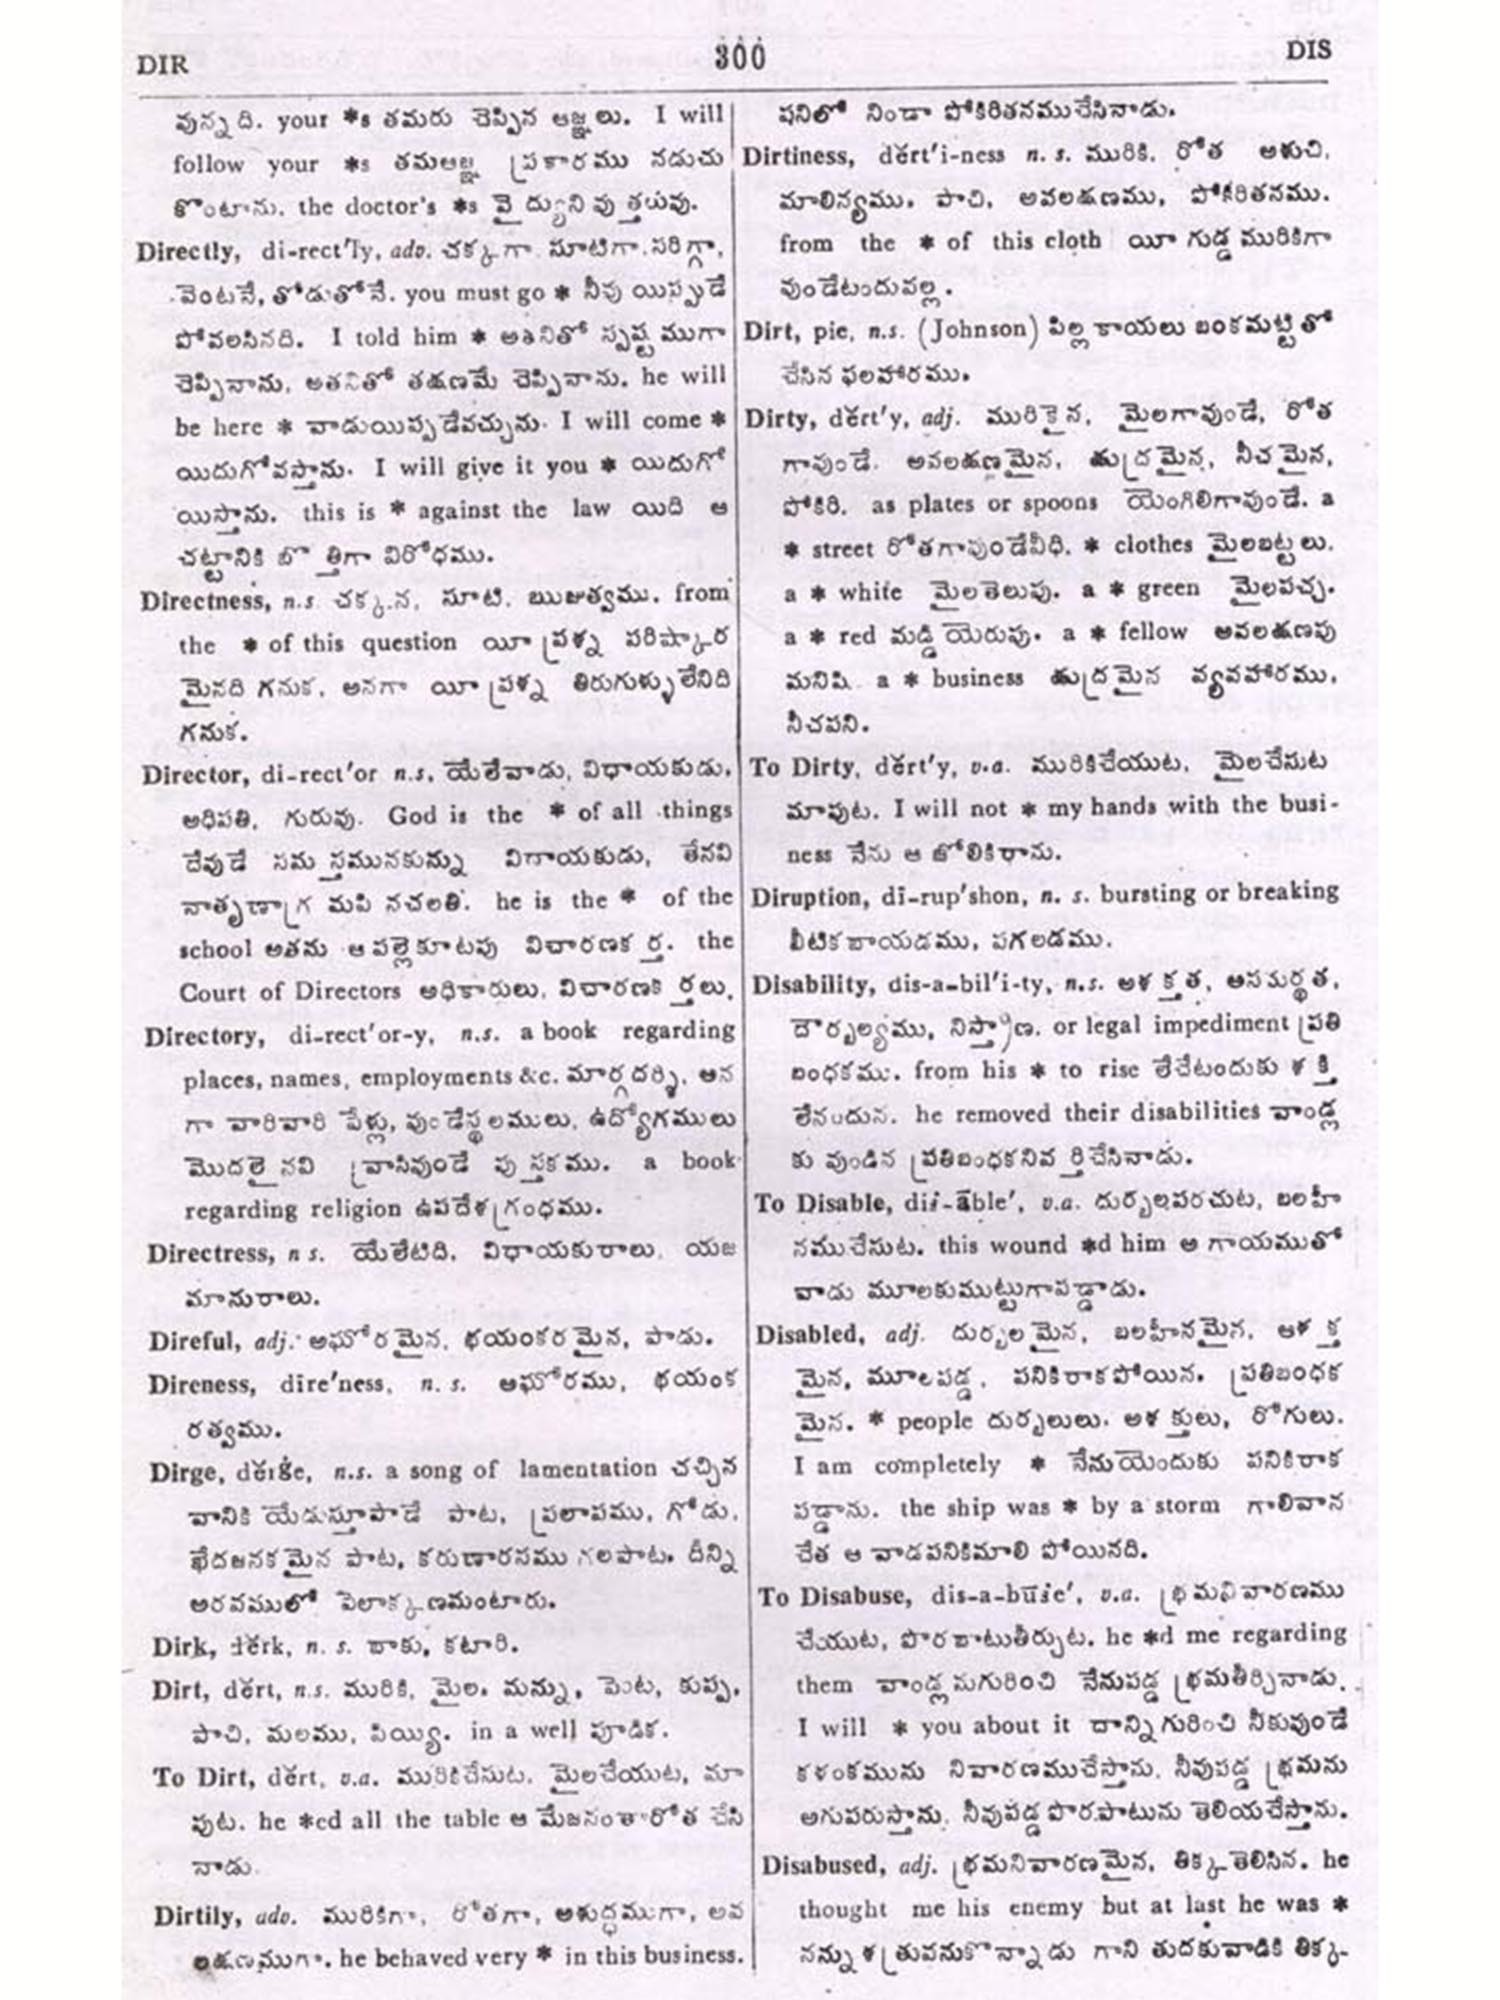 DIR
300
DIS
వున్నది. your *s తమరు చెప్పిన ఆజ్ఞలు. I will
follow your *s తమఆజ్ఞ ప్రకారము నడుచు
కొంటాను. the doctor's *s వైద్యుని వుత్తరువు.
Directly, di-rect'ly, adv. చక్కగా, సూటిగా, సరిగ్గా,
వెంటనే, తోడుతోనే. you must go * నీవు యిప్పుడే
పోవలసినది. I told him * అతనితో స్పష్టముగా
చెప్పినాను, అతనితో తక్షణమే చెప్పినాను. he will
be here * వాడుయిప్పడేవచ్చును. I will come *
యిదుగోవస్తాను. I will give it you * యిదుగో
యిస్తాను. this is * against the law యిది ఆ
చట్టానికి బొత్తిగా విరోధము.
Directness, n.s. చక్కన, సూటి, ఋజుత్వము. from
the * of this question యీ ప్రశ్న పరిష్కార
మైనది గనుక, అనగా యీ ప్రశ్న తిరుగుళ్ళులేనిది
గనుక.
Director, di-rect'or n.s. యేలేవాడు, విధాయకుడు,
అధిపతి, గురువు. God is the * of all things
దేవుడే సమస్తమునకున్ను విగాయకుడు, తేనవి
నాతృణాగ్ర మపి నచలతి. he is the * of the
school అతను ఆ పల్లెకూటపు విచారణకర్త. the
Court of Directors అధికారులు, విచారణకర్తలు.
Directory, di-rect'or-y, n.s. a book regarding
places, names, employments &c. మార్గదర్శి, అన
గా వారివారి పేళ్లు, వుండేస్థలములు, ఉద్యోగములు
మొదలైనవి వ్రాసివుండే పుస్తకము. a book
regarding religion ఉపదేశగ్రంధము.
Directress, n s. యేలేటిది, విధాయకురాలు, యజ
మానురాలు.
Direful, adj. అఘోరమైన, భయంకరమైన, పాడు.
Direness, dīre'ness, n. s. అఘోరము, భయంక
రత్వము.
Dirge, dĕrġe, n.s. a song of lamentation చచ్చిన
వానికి యేడుస్తూపాడే పాట, ప్రలాపము, గోడు,
ఖేదజనకమైన పాట, కరుణారసము గలపాట. దీన్ని
అరవములో పెలాక్కణమంటారు.
Dirk, dĕrk, n. s. బాకు, కటారి.
Dirt, dĕrt, n.s. మురికి, మైల, మన్ను, పెంట, కుప్ప,
పాచి, మలము, పియ్యి. in a well పూడిక.
To Dirt, dĕrt, v.a. మురికిచేసుట, మైలచేయుట, మా
పుట. he *ed all the table ఆ మేజనంతారోత చేసి
నాడు.
Dirtily, adv. మురికిగా, రోతగా, అశుద్ధముగా, అవ
లక్షణముగా. he behaved very * in this business.
షనిలో నిండా పోకిరితనముచేసినాడు.
Dirtiness, dĕrt'i-ness n. s. మురికి, రోత అశుచి,
మాలిన్యము, పాచి, అవలక్షణము, పోకిరితనము.
from the * of this cloth యీ గుడ్డ మురికిగా
వుండేటందువల్ల.
Dirt, pie, n.s. (Johnson) పిల్లకాయలు బంకమట్టితో
చేసిన ఫలహారము.
Dirty, dĕrt'y, adj. మురికైన, మైలగావుండే, రోత
గావుండే. అవలక్షణమైన, క్షుద్రమైన, నీచమైన,
పోకిరి. as plates or spoons యెంగిలిగావుండే. a
* street రోతగావుండేవీధి. * clothes మైలబట్టలు.
a * white మైలతెలుపు. a * green మైలపచ్చ.
a * red మడ్డి యెరుపు. a * fellow అవలక్షణపు
మనిషి. a * business క్షుద్రమైన వ్యవహారము,
నీచపని.
To Dirty, dĕrt'y, v.a. మురికిచేయుట, మైలచేసుట
మాపుట. I will not * my hands with the busi-
ness నేను ఆ జోలికిరాను.
Diruption, dī-rup'shon, n. s. bursting or breaking
బీటికబాయడము, పగలడము.
Disability, dis-a-bil'i-ty, n.s. అశక్తత, అసమర్థత,
దౌర్బల్యము, నిస్త్రాణ. or legal impediment ప్రతి
బంధకము. from his * to rise లేచేటందుకు శక్తి
లేనందున. he removed their disabilities వాండ్ల
కు వుండిన ప్రతిబంధకనివర్తిచేసినాడు.
To Disable, dis-āble', v.a. దుర్బలపరచుట, బలహీ
నముచేసుట. this wound *d him ఆ గాయముతో
వాడు మూలకుముట్టుగాపడ్డాడు.
Disabled, adj. దుర్బలమైన, బలహీనమైన, అశక్త
మైన, మూలపడ్డ, పనికిరాకపోయిన. ప్రతిబంధక
మైన. * people దుర్బలులు. అశక్తులు, రోగులు.
I am completely * నేనుయెందుకు పనికిరాక
పడ్డాను. the ship was * by a storm గాలివాన
చేత ఆ వాడపనికిమాలి పోయినది.
To Disabuse, dis-a-būse', v.a. భ్రమనివారణము
చేయుట, పొరబాటుతీర్చుట. he *d me regarding
them వాండ్లనుగురించి నేనుపడ్డ భ్రమతీర్చినాడు.
I will * you about it దాన్నిగురించి నీకువుండే
కళంకమును నివారణముచేస్తాను, నీవుపడ్డ భ్రమను
అగుపరుస్తాను, నీవుపడ్డపొరపాటును తెలియచేస్తాను.
Disabused, adj. భ్రమనివారణమైన, తిక్కతెలిసిన. he
thought me his enemy but at last he was *
నన్ను శత్రువనుకొన్నాడు గాని తుదకువాడికి తిక్క-